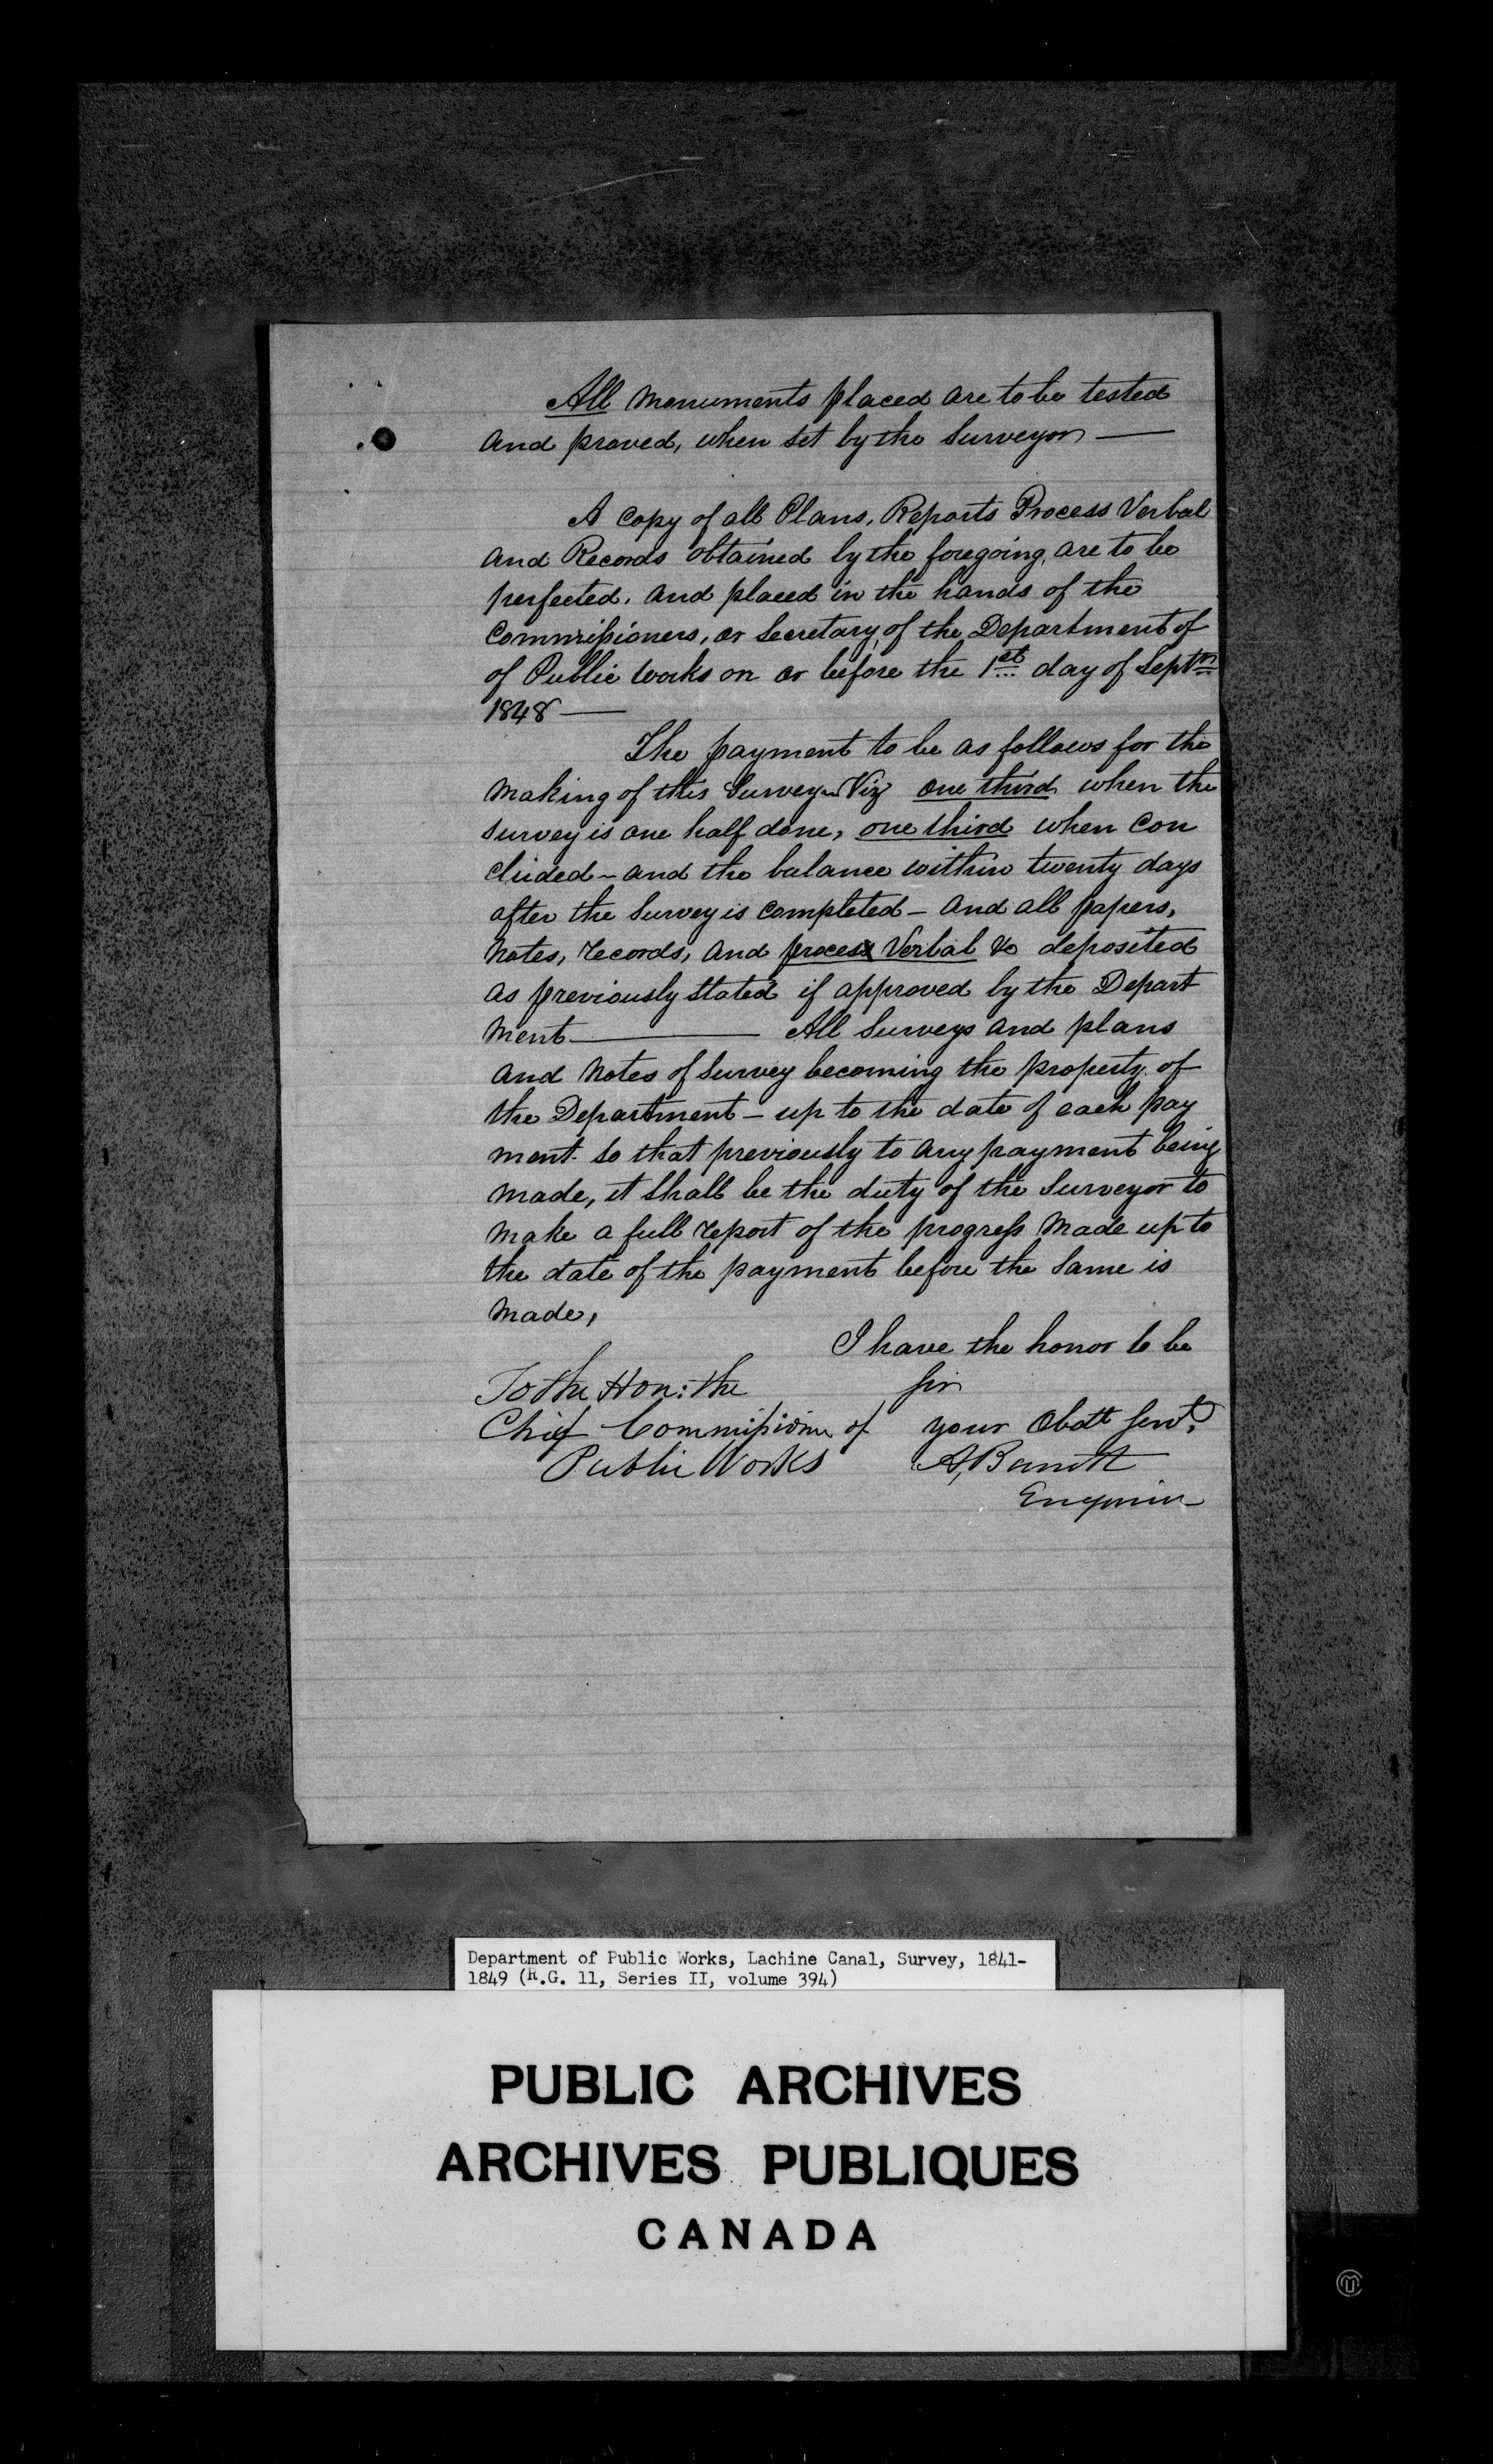 All Monuments placed are to be tested
and proved, when set by the Surveyor —
A Copy of all Plans, Reports Process Verbal
and Records obtained by the foregoing, are to be
perfected, and placed in the hands of the
Commissioners, or Secretary, of the Department of
of Public works on or before the 1st day of Septm
1848 —
The payment to be as follows for the
Making of this Survey – Viz one third when the
survey is one half done, one third when Con
cluded – and the balance within twenty days
after the Survey is Completed – and all papers,
Notes, records, and process Verbal &c deposited
as previously stated if approved by the Depart
ment — All Surveys and plans
and Notes of Survey becoming the property of
the Department – up to the date of each pay
ment. So that previously to any payment being
made, it shall be the duty of the Surveyor to
make a full report of the progress Made up to
the date of the payment before the same is
made,
I have the honor to be
To the Hon: the Sir
Chief Commissioner of your Obdt Servt,
Public Works A, Barrett
Engineer
Department of Public Works, Lachine Canal, Survey, 1841-
1849 (R.G. 11, Series II, volume 394)
PUBLIC ARCHIVES
ARCHIVES PUBLIQUES
CANADA